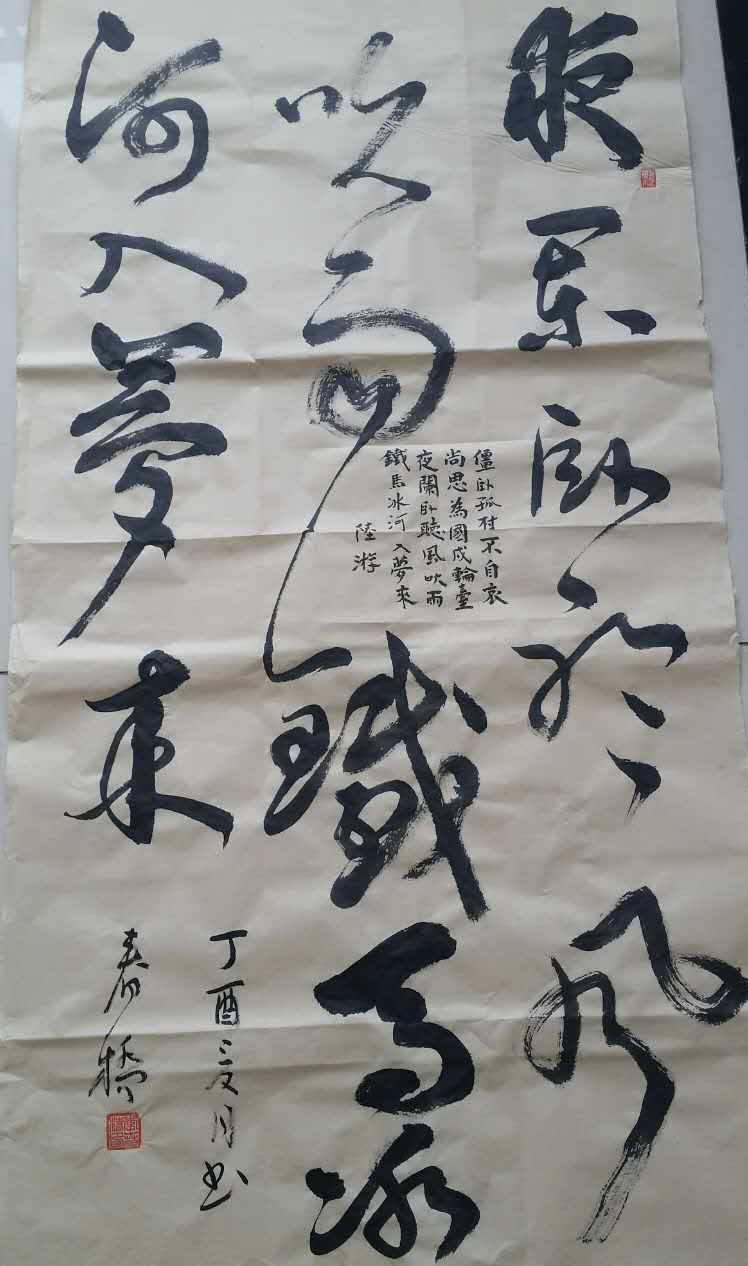 夜闌卧聽風
吹雨鐵馬冰
河入夢來
僵卧孤村不自哀
尚思為國戍輪臺
夜闌卧聽風吹雨
鐵馬冰河入夢來
陸游
丁酉夏月书
春橋